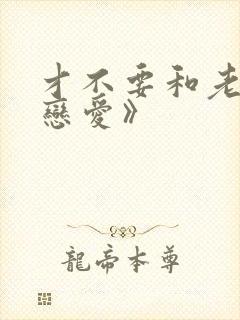 才不要和老
戀愛》
龍帝本尊